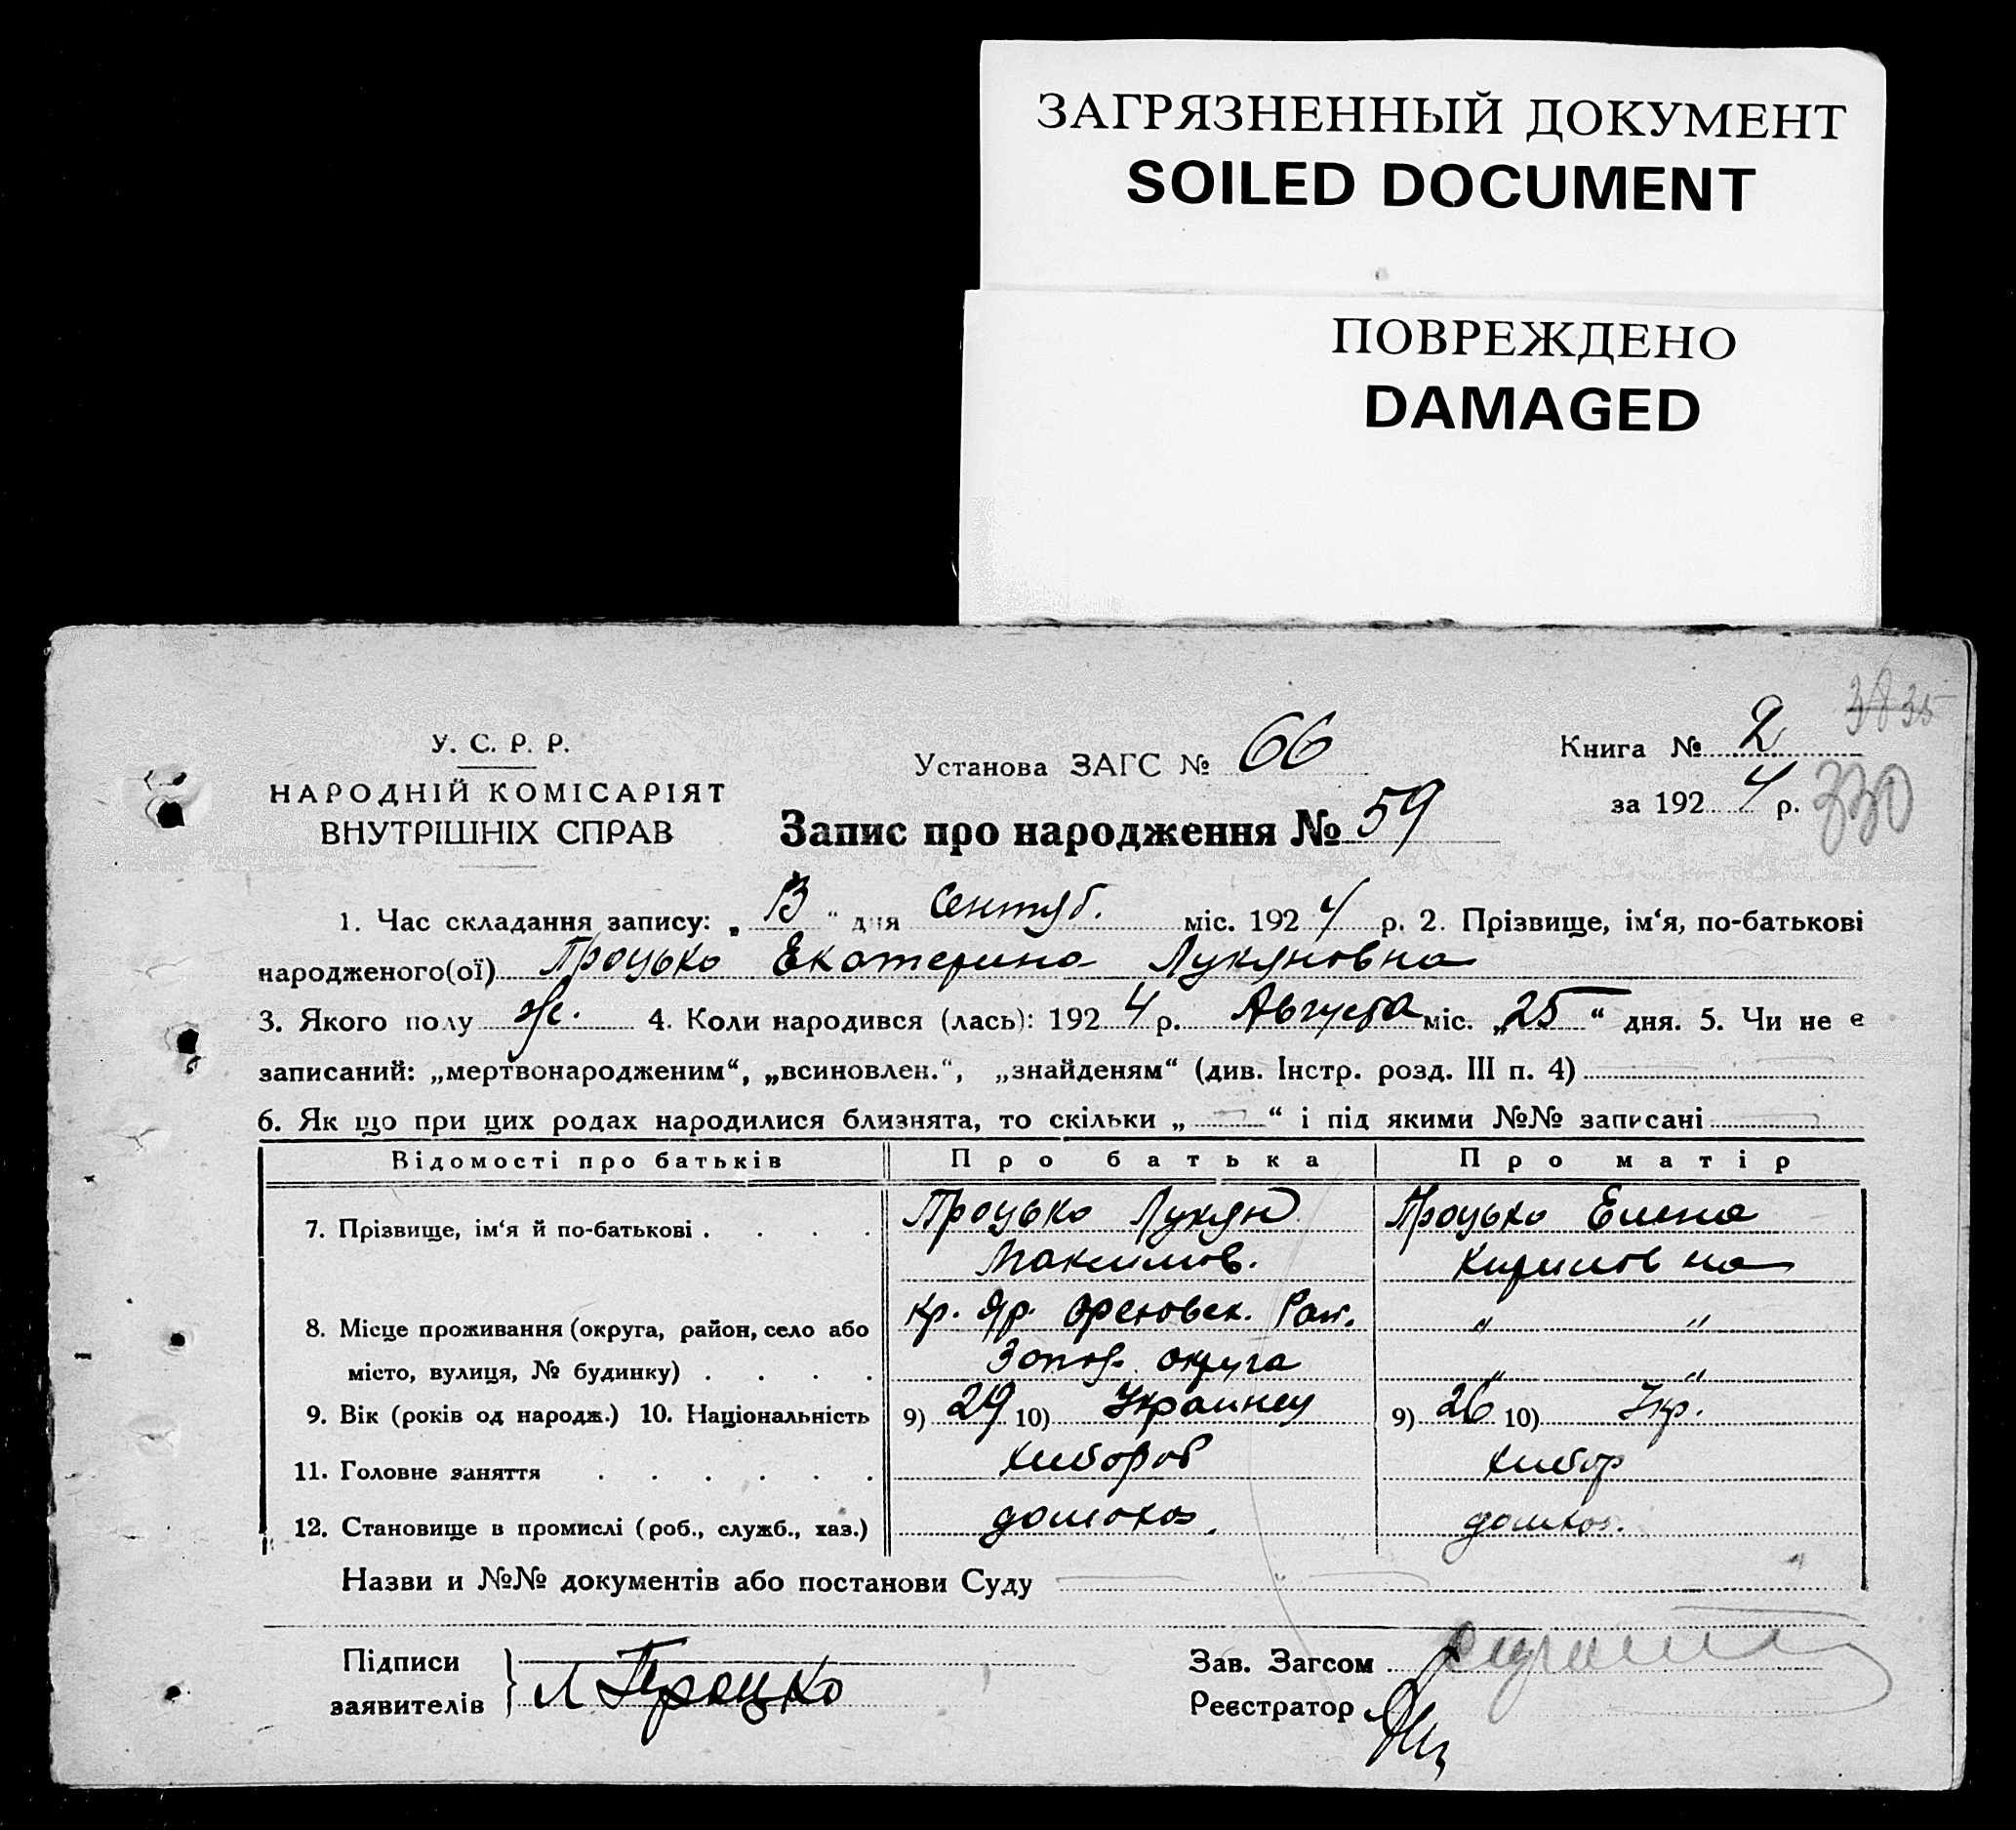 ЗАГРЯЗНЕННЫЙ ДОКУМЕНТ
SOILED DOCUMENT
ПОВРЕЖДЕНО
DAMAGED
3835
У. С. Р. Р.
НАРОДНІЙ КОМІСАРІЯТ
ВНУТРІШНІХ СПРАВ
Установа ЗАГС № 66
Запис про народження № 59
Книга № 2
за 1924 р.
330
1. Час складання запису: „13“ дня Сентяб. міс. 1924 р. 2. Прізвище, ім‘я, по-батькові
народженого(ої) Процько Екатерина Лукяновна
3. Якого полу ж. 4. Коли народився (лась): 1924 р. Августа міс. „25“ дня. 5. Чи не е
записаний: „мертвонародженим“, „всиновлен.“, „знайденям“ (див. Інстр. розд. III п. 4)
6. Як що при цих родах народилися близнята, то скільки „ — “ і під якими №№ записані —
Відомості про батьків Про батька Про матір
7. Прізвище, ім‘я й по-батькові . . . . Процько Лукян Процько Елена
Максимов. Кирилов на
8. Місце проживання (округа, район, село або Кр. Яр Ореховск. Рай. „ „
місто, вулиця, № будинку) . . . . Запор. округа „ „
9. Вік (років од народж.) 10. Національність 9) 29 10) Украинец 9) 26 10) Укр.
11. Головне заняття . . . . . . Хлебороб Хлебор
12. Становище в промислі (роб., служб., хаз.) домохоз. домхоз.
Назви и №№ документів або постанови Суду —
Підписи
заявителів } Л Процко
Зав. Загсом
Реєстратор